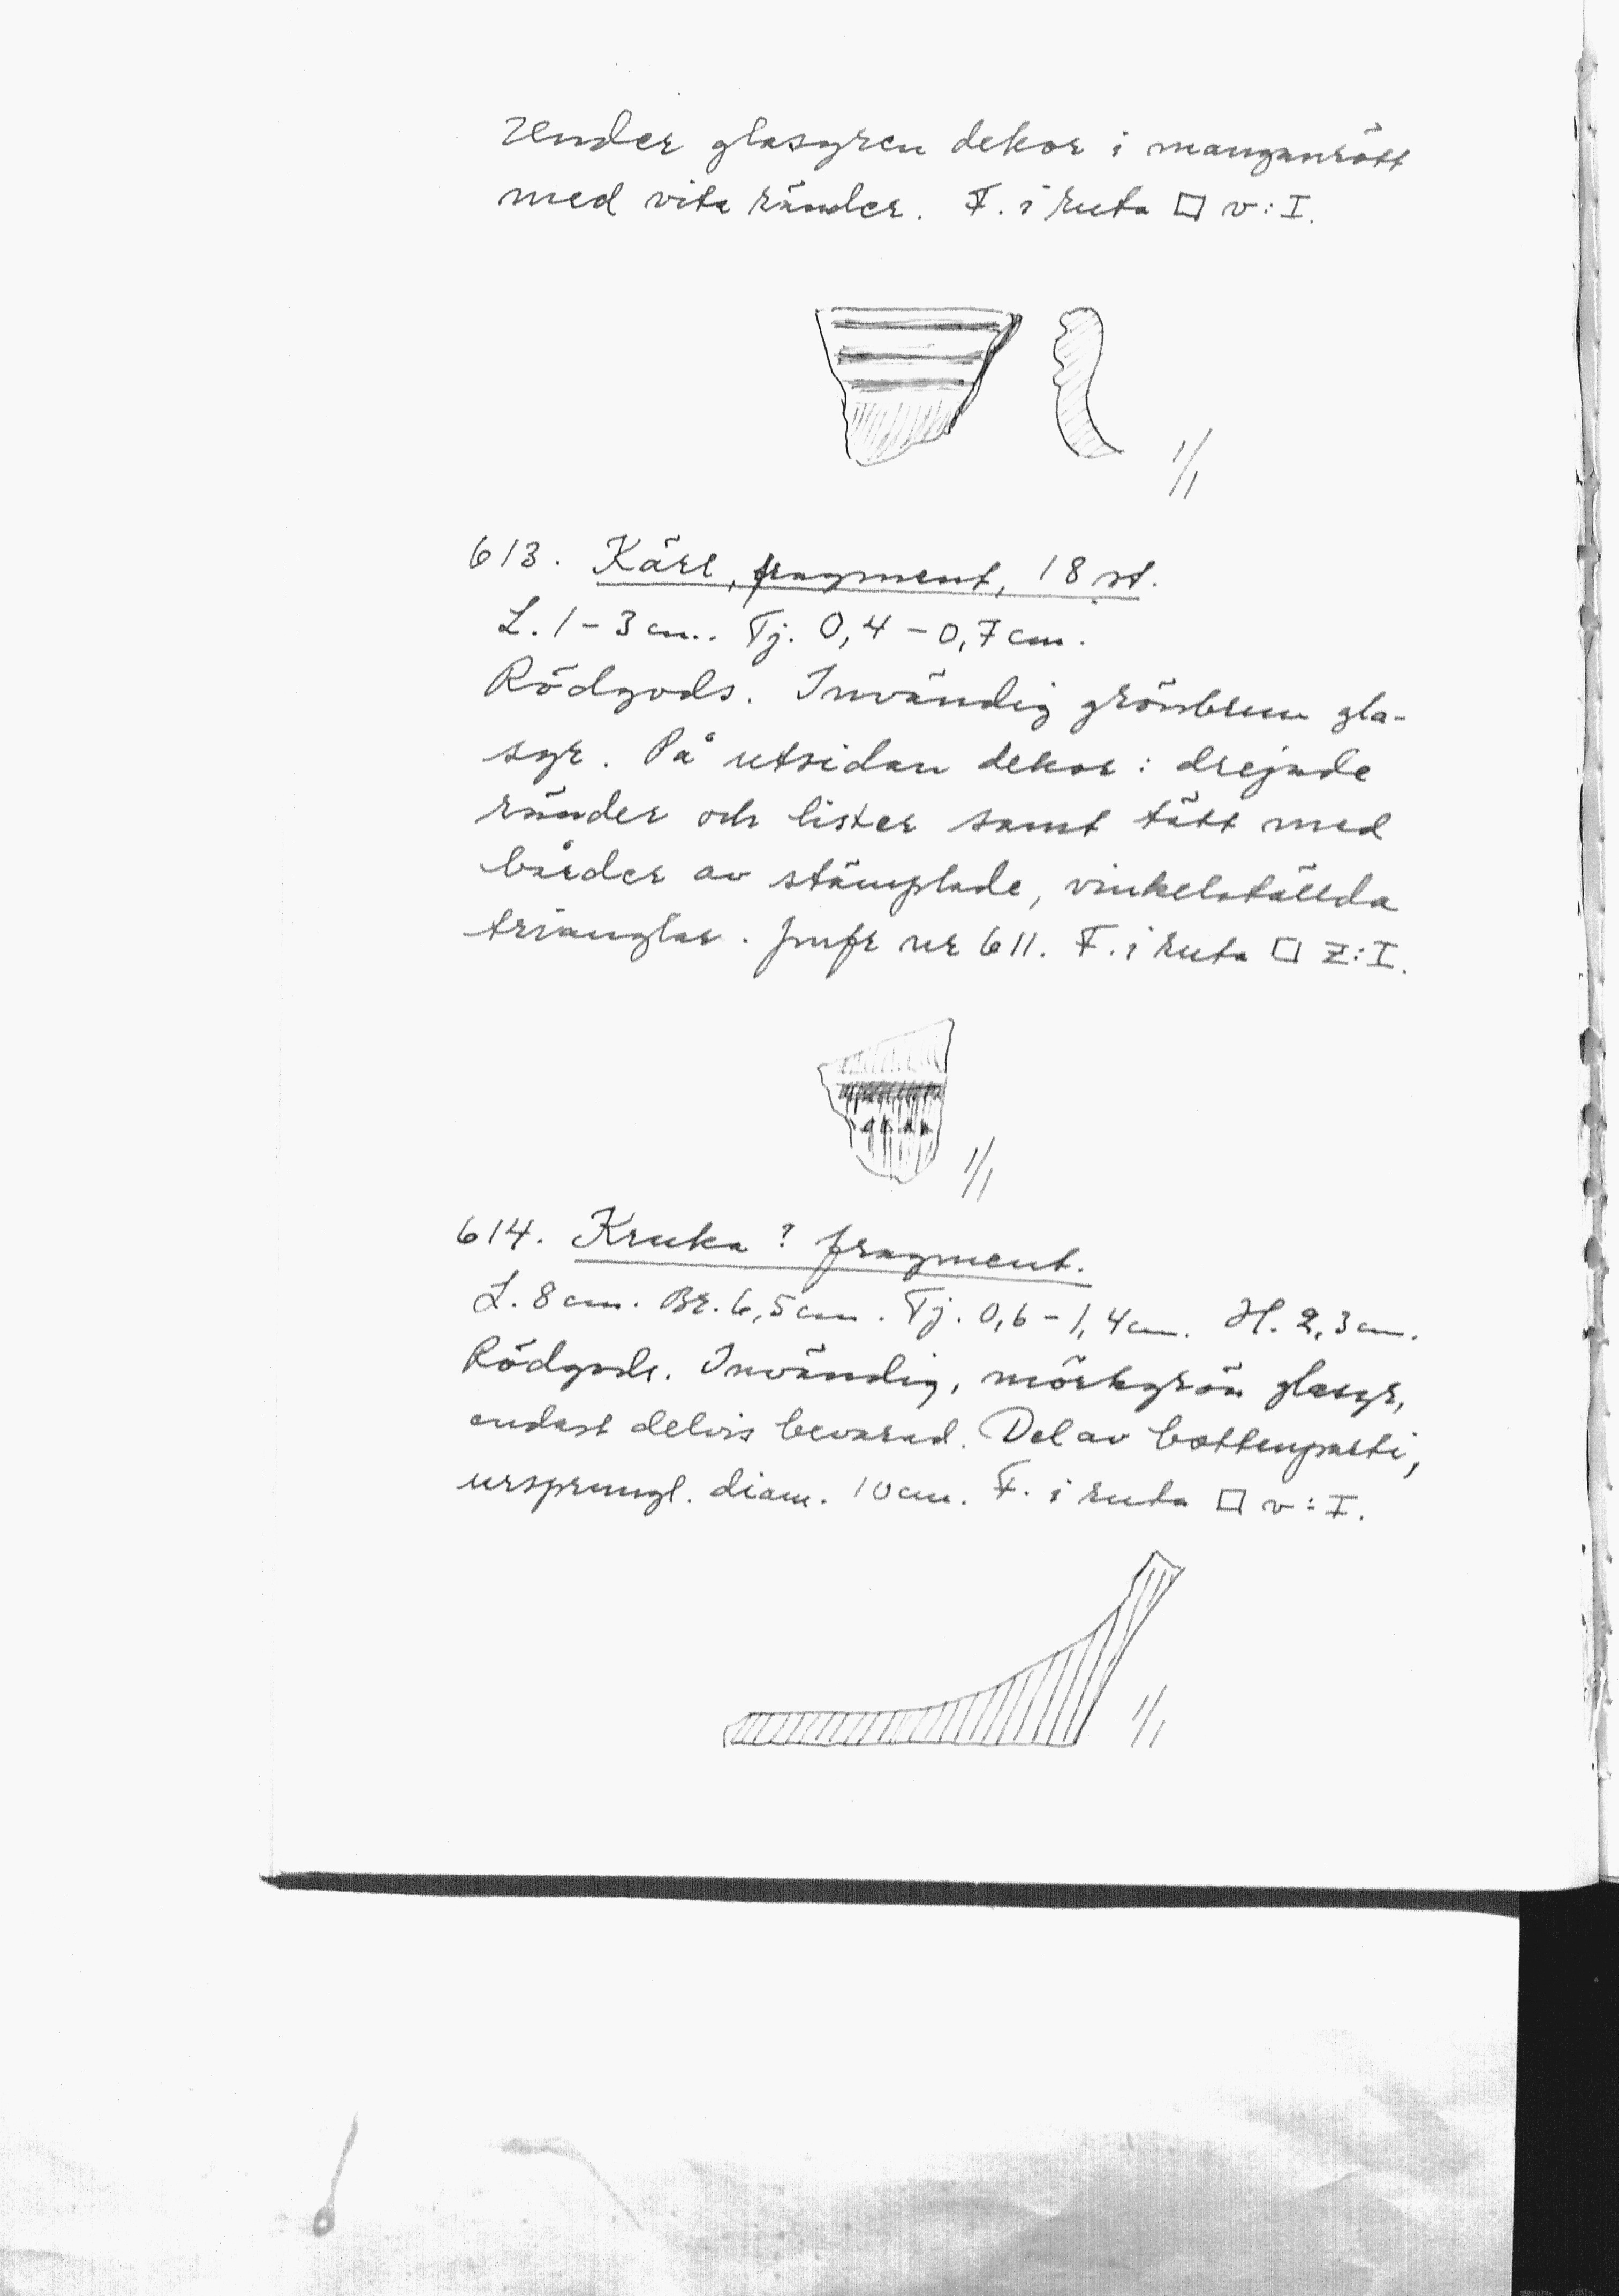 Under glasyren dekor i manganrött
med vita ränder. F. i ruta □ v:I.
1/1
613. Kärl, fragment, 18 st.
L. 1-3 cm. Tj. 0,4-0,7 cm.
Rödgods. Invändig grönbrun gla-
syr. På utsidan dekor: drejade
ränder och lister samt tätt med
bårder av stämplade, vinkelställda
trianglar. Jmfr nr 611. F. i ruta □ z:I.
1/1
614. Kruka? fragment.
L. 8 cm. Br. 6,5 cm. Tj. 0,6-1,4 cm. H. 2,3 cm.
Rödgods. Invändig, mörkgrön glasyr,
endast delvis bevarad. Del av bottenparti,
ursprungl. diam. 10 cm. F. i ruta □ v:I.
1/1